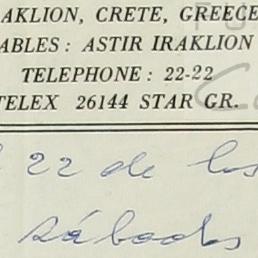 AKLION, CRETE, GREECE
ABLES: ASTIR IRAKLION
TELEPHONE: 22-22
TELEX 26144 STAR GR.
22 de los
sábados